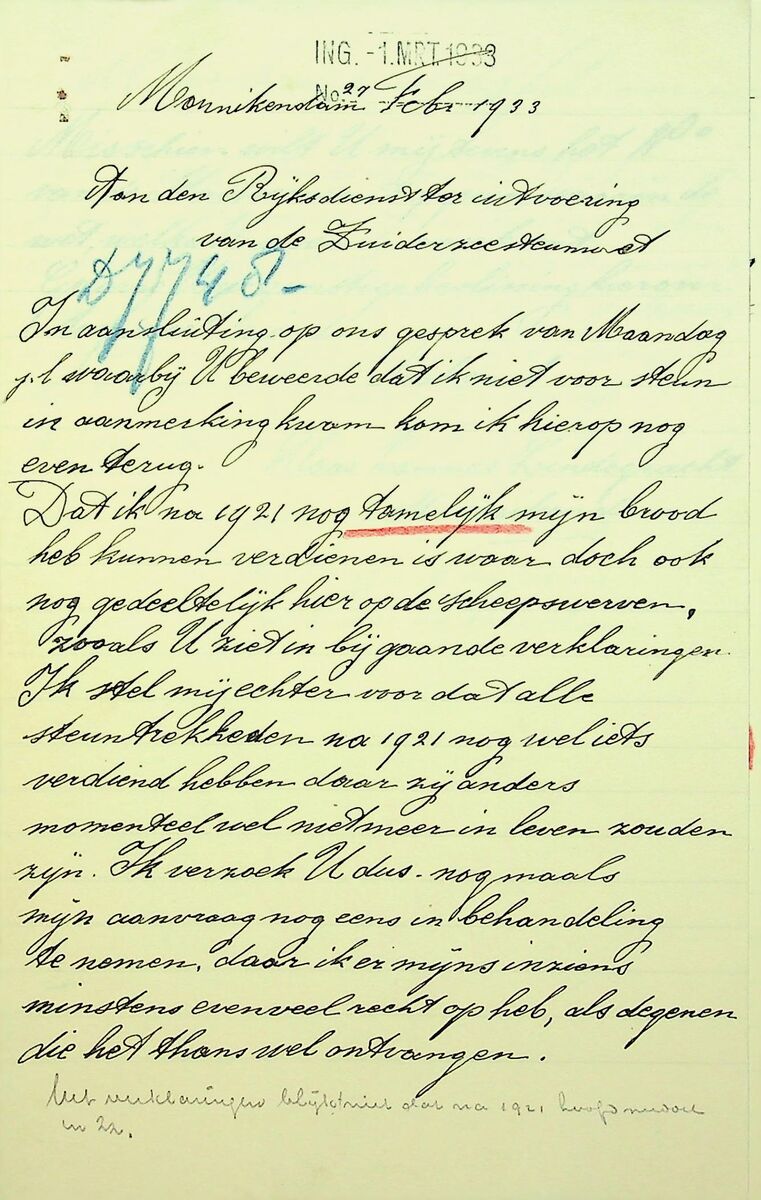 ING. -1.MRT.1933
No.
Monnikendam 27 Febr 1933
Aan den Rijksdienst ter uitvoering
van de Zuiderzeesteunwet
D7748-
In aansluiting op ons gesprek van Maandag
j.l waarby U beweerde dat ik niet voor steun
in aanmerking kwam kom ik hierop nog
even terug.
Dat ik na 1921 nog tamelijk mijn brood
heb kunnen verdienen is waar doch ook
nog gedeeltelijk hier op de scheepswerven,
zooals U ziet in bijgaande verklaringen.
Ik stel mij echter voor dat alle
steuntrekkeden na 1921 nog wel iets
verdiend hebben daar zij anders
momenteel wel niet meer in leven zouden
zijn. Ik verzoek U dus nogmaals
mijn aanvraag nog eens in behandeling
te nemen, daar ik er mijns inziens
minstens evenveel recht op heb, als degenen
die het thans wel ontvangen.
Uit verklaringen blijkt niet dat na 1921
in 22.